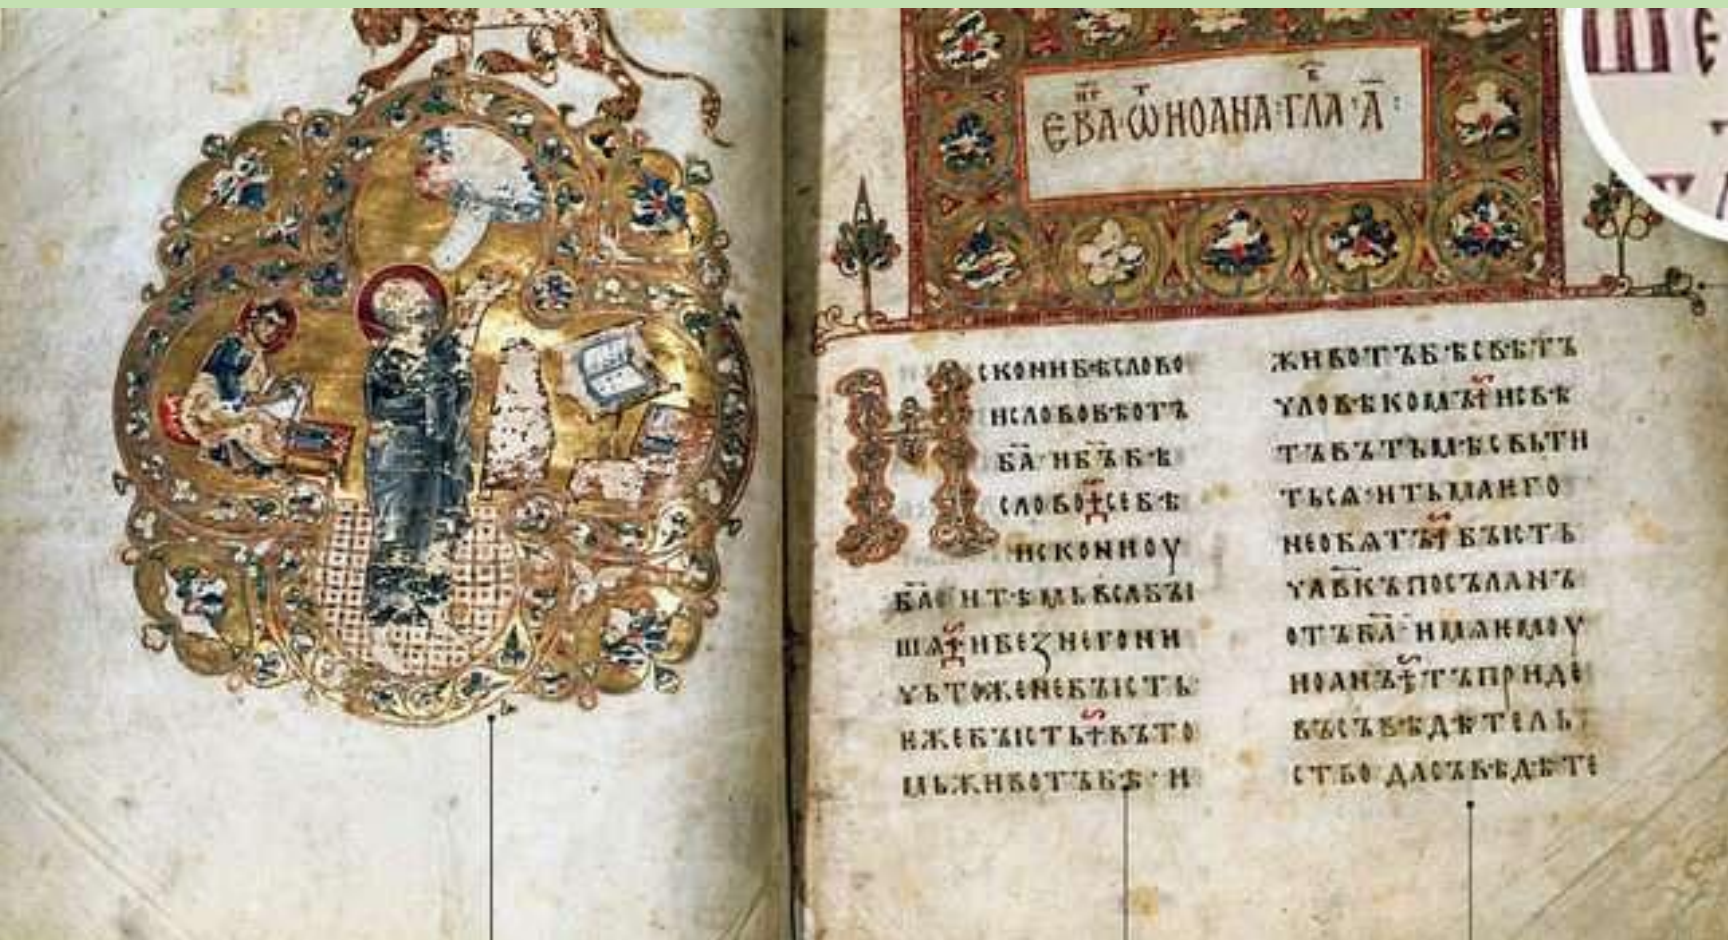 ЕВА·Ѿ ИОАНА·ГЛА·А҃:
ИСКОНИБѢСЛОВО
ИСЛОВОБѢОТЪ
БА҃·ИБ҃ЪБѢ
СЛОВО СЕБѢ
ИСКОНИОУ
БА҃ ИТѢМЬВСАБЪІ
ШѦ ИБЕЗНЕГОНИ
ЧЬТОЖЕНЕБЪІСТЬ·
ИЖЕБЪІСТЬ ВЪТО
МЬЖИВОТЪБѢ·И
ЖИВОТЪБѢСВѢТЪ
ЧЛОВѢКОМЪ ИСВѢ
ТЪВЪТЬМѢСВЬТИ
ТЬСѦ·ИТЬМАѤГО
НЕОБѦТЪ БЪІСТЬ
ЧЛ҃ВКЪПОСЪЛАНЪ
ОТЪБА҃·ИМѦѤМОУ
ИОАНЪ ТЪПРИДЕ
ВЪСЪВѢДѢТЕЛЬ
СТВО ДАСЪВѢДѢТЕ